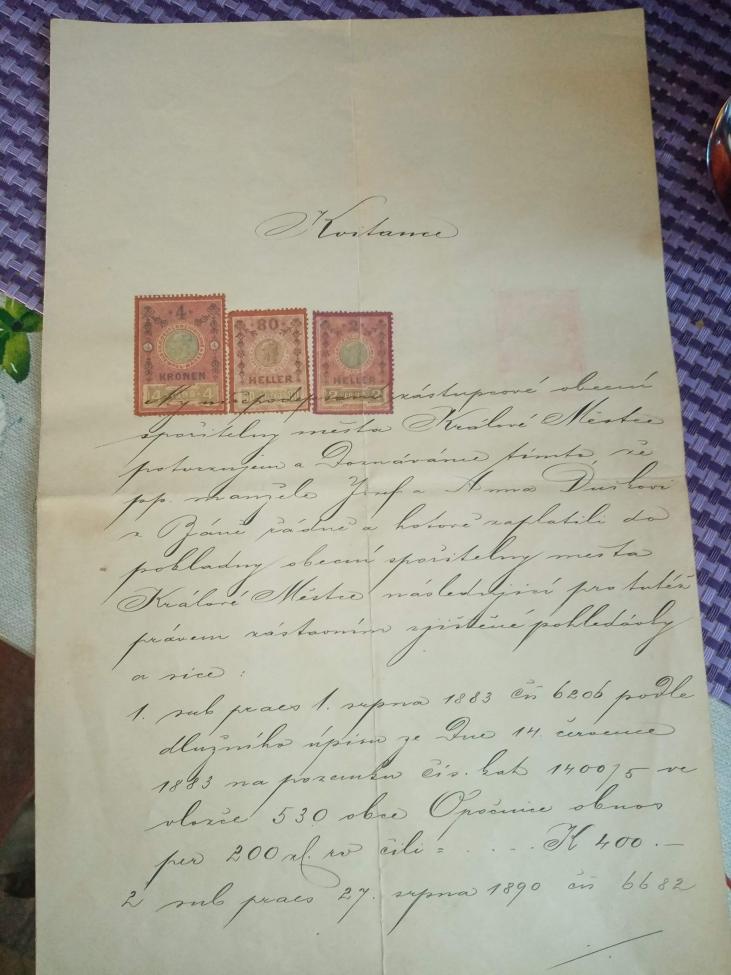 Kvitance
4
KRONEN
80
HELLER
2
HELLER
My níže podepsaní zástupcové obecní
spořitelny města Králové Městce
potvrzujem a Doznáváme tímto, že
pp. manželé Josef a Anna Duškovi
z Báně řádně a hotově zaplatili do
pokladny obecní spořitelny města
Králové Městce následující pro tutéž
právem zástavním zjištěné pohledávky
a sice :
1. sub praes 1. srpna 1883 čís 6206 podle
dlužního úpisu ze Dne 14. července
1883 na pozemku čís. kat 1400/5 ve
vložce 530 obce Opočnice obnos
per 200 zl. rč čili = . . . . K 400.—
2 sub praes 27. srpna 1890 čís 6682
./.